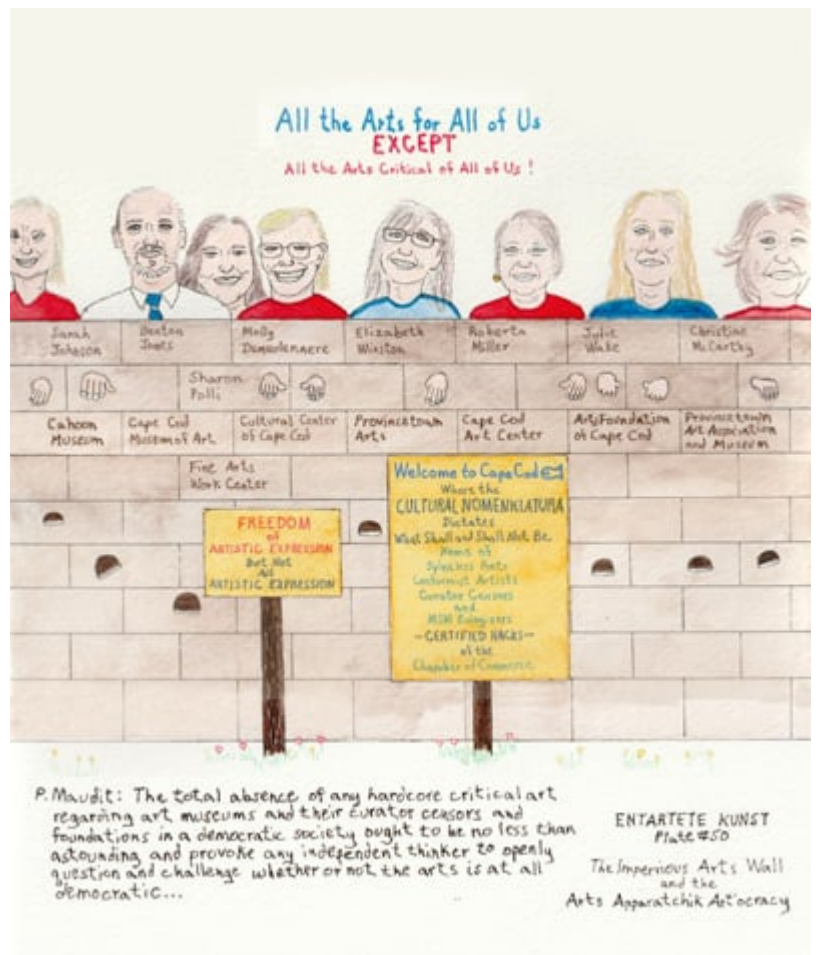 All the Arts for All of Us
EXCEPT
All the Arts Critical of All of Us !
Sarah Johnson
Benton Jones
Molly Demeulenaere
Elizabeth Winston
Roberta Miller
Julie Wake
Christine McCarthy
Sharon Polli
Cahoon Museum
Cape Cod Museum of Art
Cultural Center of Cape Cod
Provincetown Arts
Cape Cod Art Center
Arts Foundation of Cape Cod
Provincetown Art Association and Museum
Fine Arts Work Center
FREEDOM
of
ARTISTIC EXPRESSION
But Not
All
ARTISTIC EXPRESSION
Welcome to Cape Cod
Where the
CULTURAL NOMENKLATURA
Dictates
What Shall and Shall Not Be
Home of
Spineless Poets
Conformist Artists
Curator Censors
and
-CERTIFIED HACKS-
of the
Chamber of Commerce
P. Maudit: The total absence of any hardcore critical art
regarding art museums and their curator censors and
foundations in a democratic society ought to be no less than
astounding and provoke any independent thinker to openly
question and challenge whether or not the arts is at all
democratic...
ENTARTETE KUNST
Plate #50
The Impervious Arts Wall
and the
Arts Apparatchik Art'ocracy